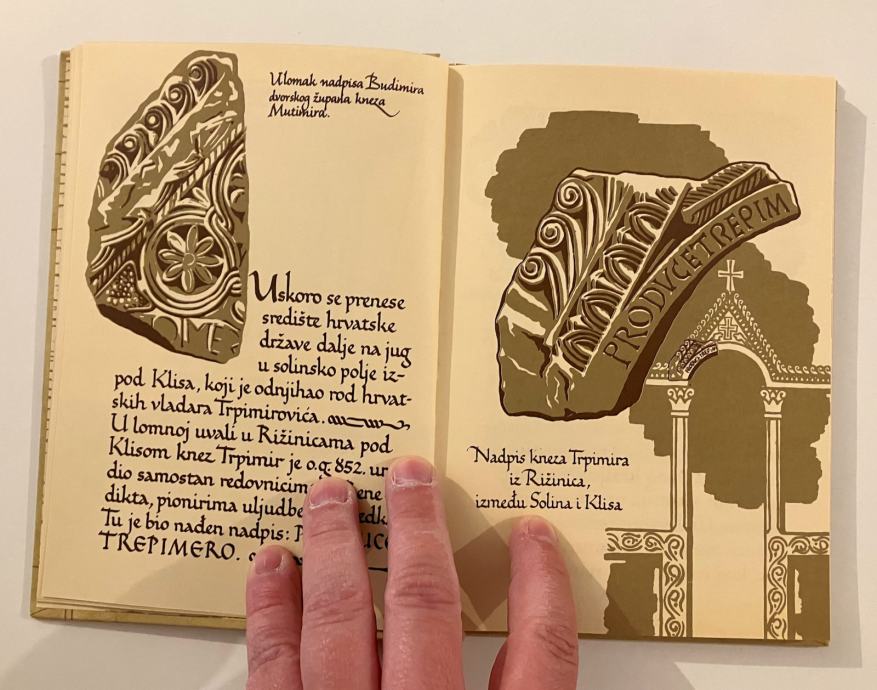 Ulomak nadpisa Budimira
dvorskog župana kneza
Mutimira.
OME
Uskoro se prenese
središte hrvatske
države dalje na jug
u solinsko polje iz-
pod Klisa, koji je odnjihao rod hrvat-
skih vladara Trpimirovića.
U lomnoj uvali u Rižinicama pod
Klisom knez Trpimir je o.g. 852. ur
dio samostan redovnicim ene
dikta, pionirima uljudbe
Tu je bio nađen nadpis: P UCE
TREPIMERO.
PRODVCETREPIM
Nadpis kneza Trpimira
iz Rižinica,
između Solina i Klisa